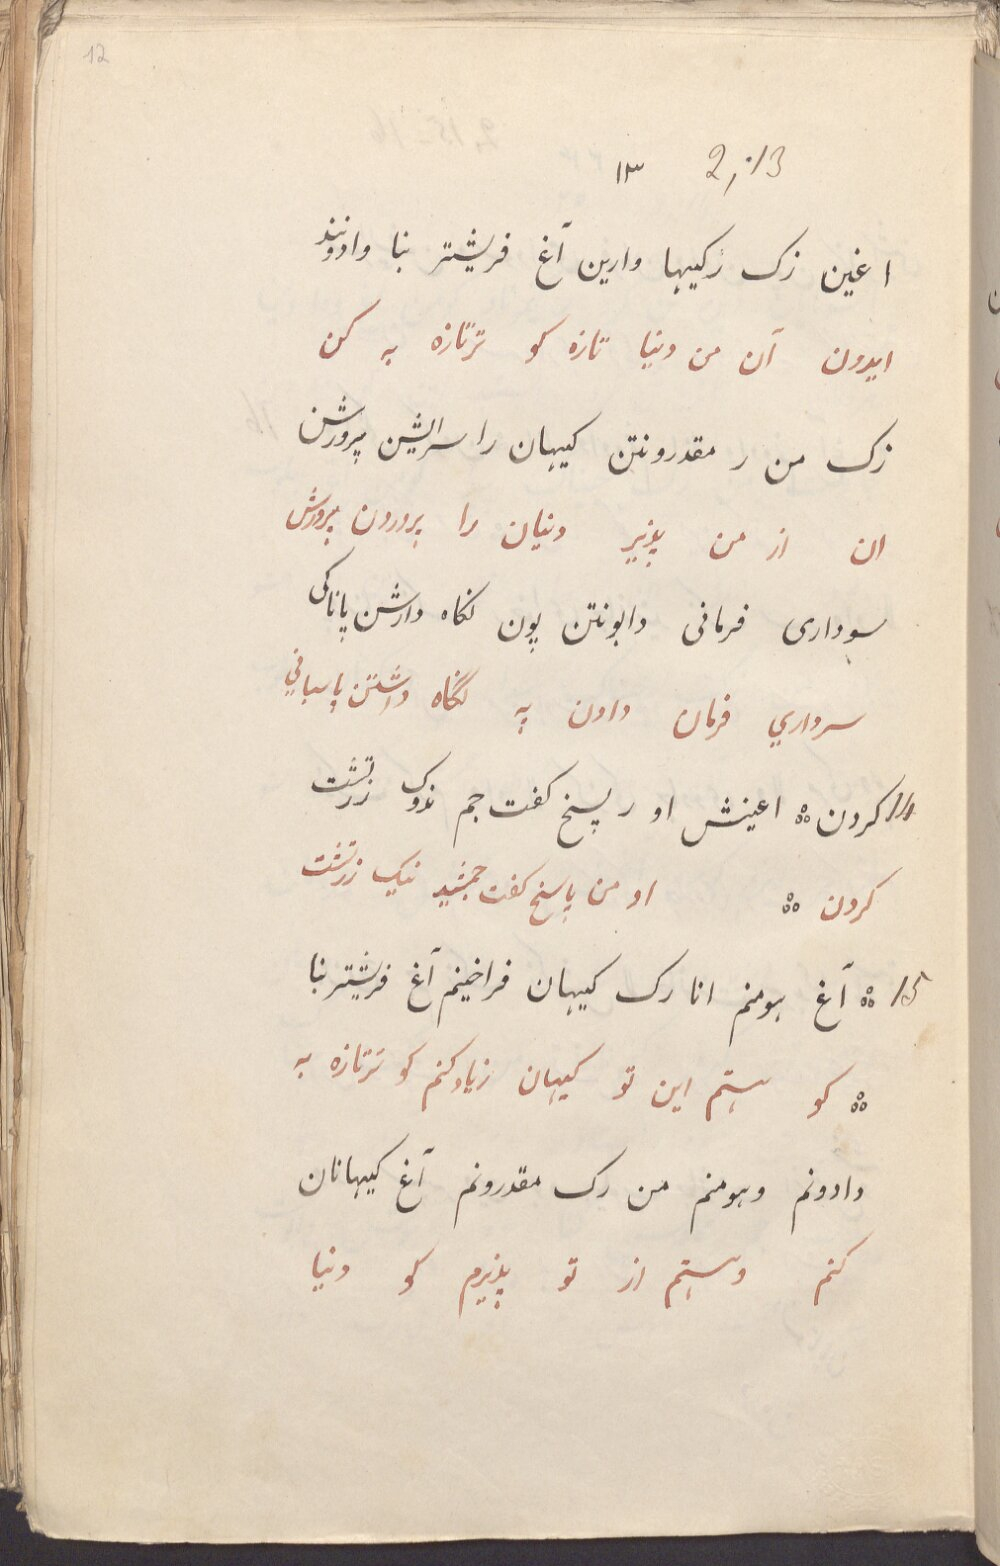 12
2,13 ۱۳
اغین زک زکیهها وارین آغ فریشتر بنا وادونند
ایدون آن من دنیا تازه کو ترتازه به کن
زک من ر مقدرونتن کیهان را سرایشن پرورشن
ان از من پذیر دنیان را پروردن پرورش
سوداری فرمانی دابونتن پون نکاه دارشن پاناکی
سرداري فرمان دادن په نگاه داشتن پاسباني
14 کردن ۰۰ اعینش او ر پسخ کفت جم نوک زرتشت
کردن ۰۰ او من پاسخ کفت جمشید نیک زرتشت
15 ۰۰ آغ هومنم انا رک کیهان فراخینم آغ فریشتر بنا
۰۰ کو هستم این تو کیهان زیاد کنم کو ترتازه به
دادونم وهومنم من رک مقدرونم آغ کیهانان
کنم وهستم از تو پذیرم کو دنیا